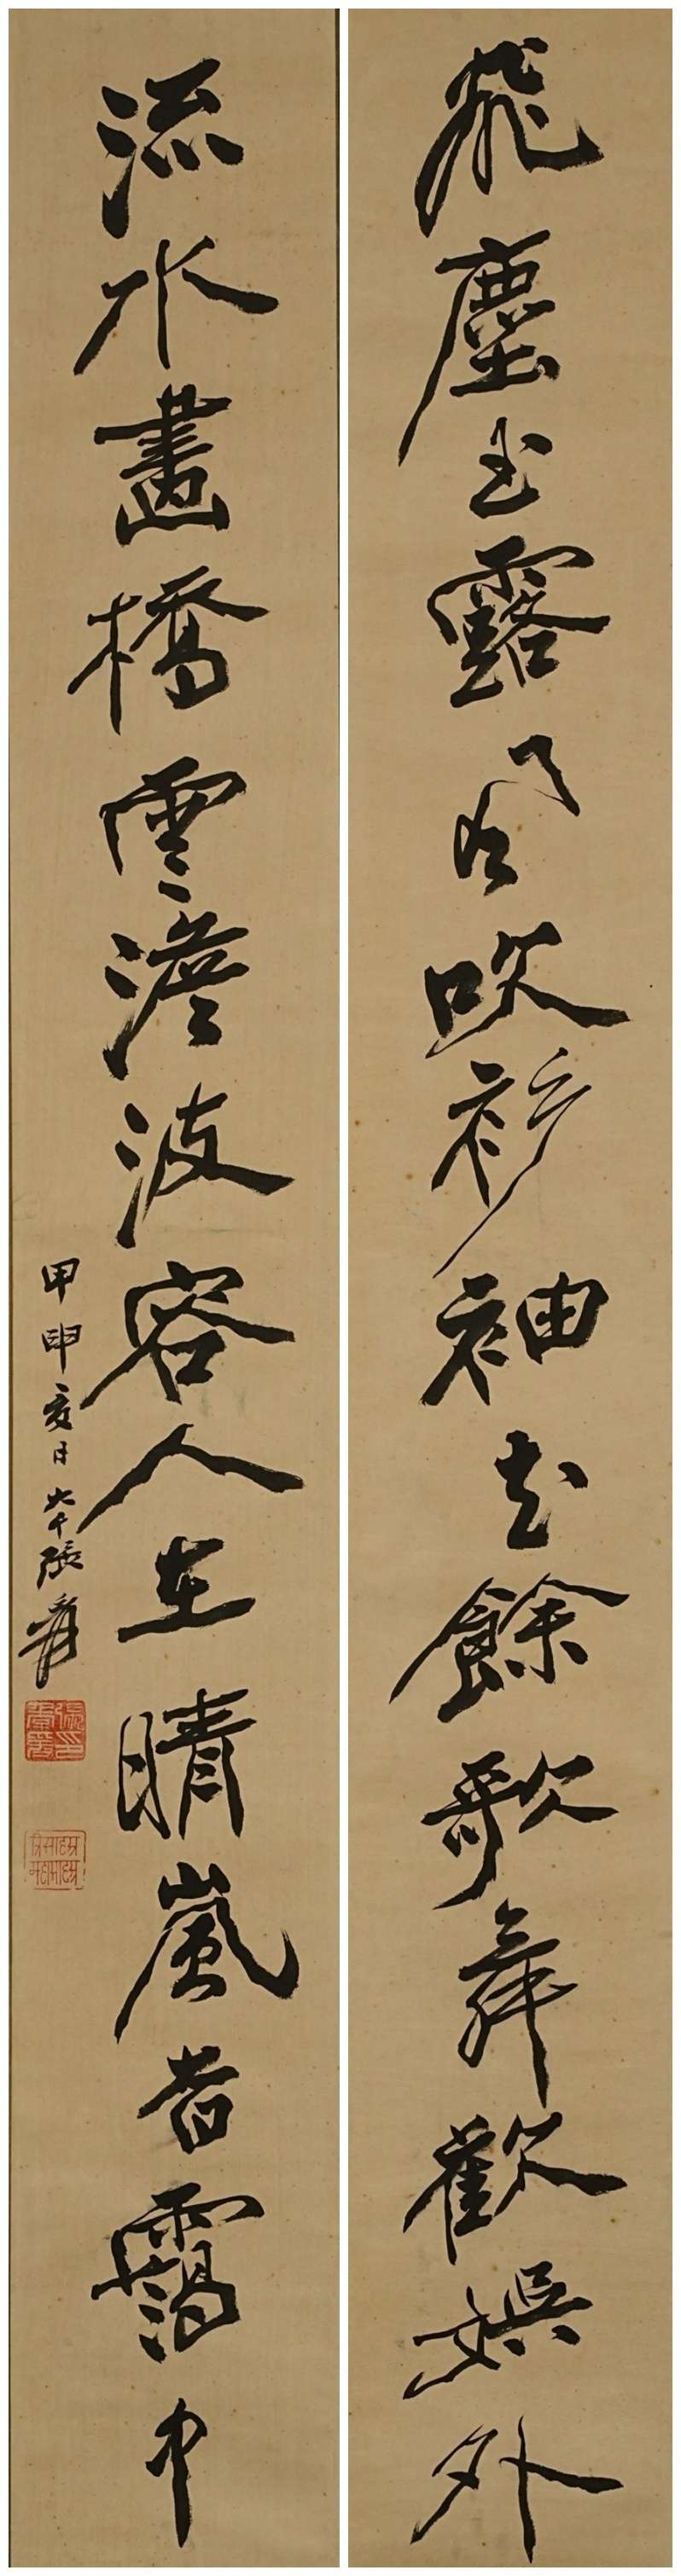 飛塵玉露風吹衫袖花餘歌舞歡娛外
流水畫橋雲澹波容人在晴嵐杳靄中
甲申夏日大千張爰